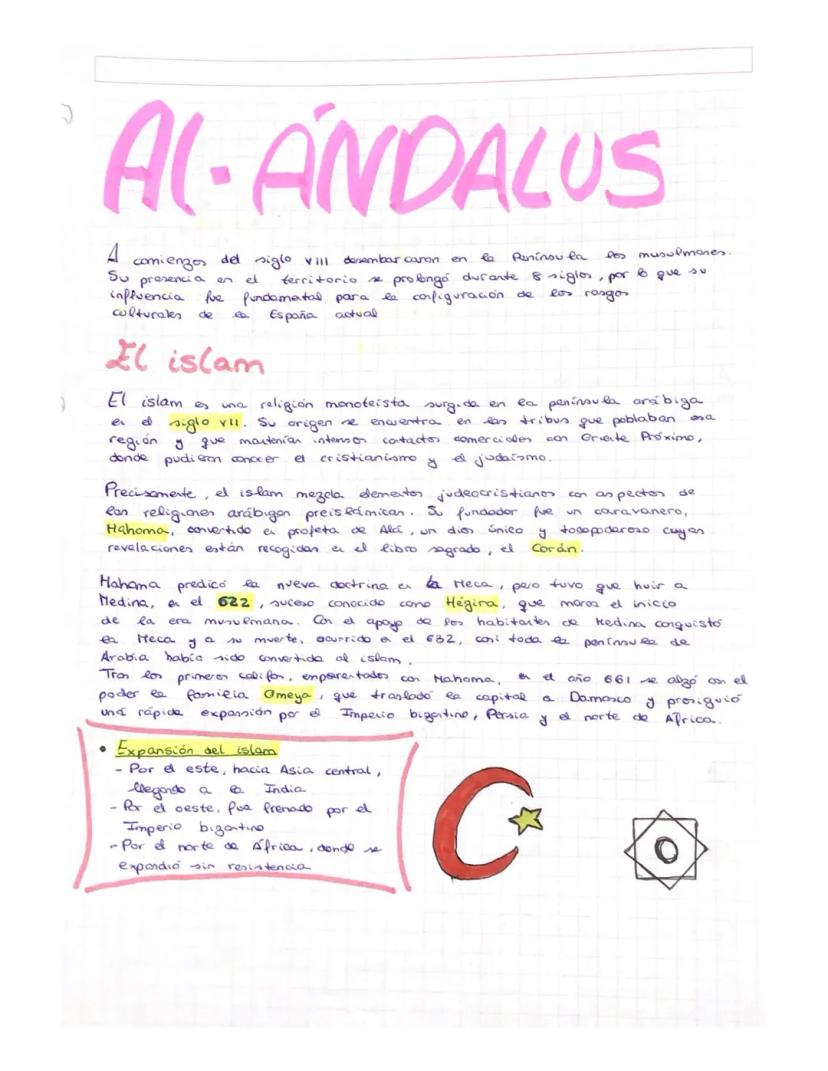 Al-ÁNDALUS
A comienzos del siglo VIII desembarcaron en la Península los musulmanes.
Su presencia en el territorio se prolongó durante 8 siglos, por lo que su
influencia fue fundamental para la configuración de los rasgos
culturales de la España actual
El islam
El islam es una religión monoteísta surgida en la península arábiga
en el siglo VII. Su origen se encuentra en las tribus que poblaban esa
región y que mantenían intensos contactos comerciales con Oriente Próximo,
donde pudieron conocer el cristianismo y el judaísmo.
Precisamente, el islam mezcla elementos judeocristianos con aspectos de
las religiones arábigas preislámicas. Su fundador fue un caravanero,
Mahoma, convertido en profeta de Alá, un dios único y todopoderoso cuyas
revelaciones están recogidas en el libro sagrado, el Corán.
Mahoma predicó la nueva doctrina en la Meca, pero tuvo que huir a
Medina, en el 622, suceso conocido como Hégira, que marca el inicio
de la era musulmana. Con el apoyo de los habitantes de Medina conquistó
la Meca y a su muerte, ocurrida en el 632, casi toda la península de
Arabia había sido convertida al islam.
Tras los primeros califas, emparentados con Mahoma, en el año 661 se alzó con el
poder la familia Omeya, que trasladó la capital a Damasco y prosiguió
una rápida expansión por el Imperio bizantino, Persia y el norte de África.
• Expansión del islam
- Por el este, hacia Asia central,
llegando a la India
- Por el oeste, fue frenado por el
Imperio bizantino
- Por el norte de África, donde se
expandió sin resistencia